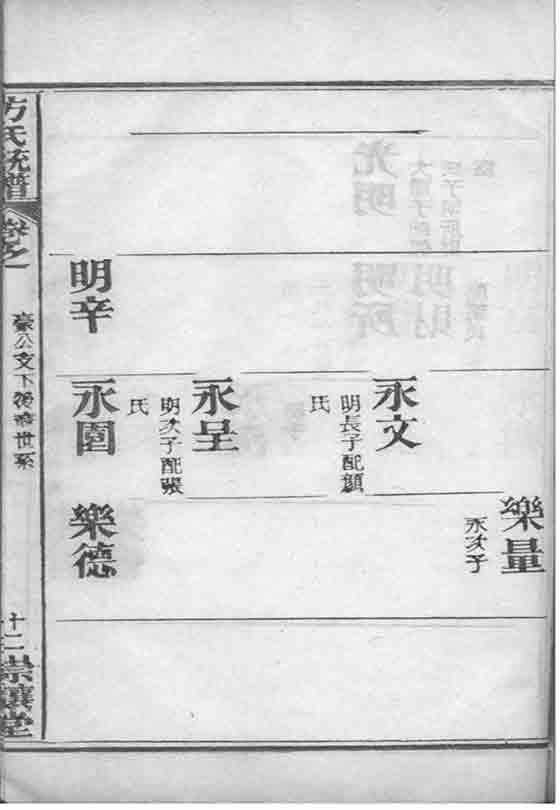 樂量
永次子
永文
明長子配顏
氏
永呈
明次子配張
氏
明辛
永圓
樂德
方氏統譜
卷之一
豪公支下
世系
十二
堂